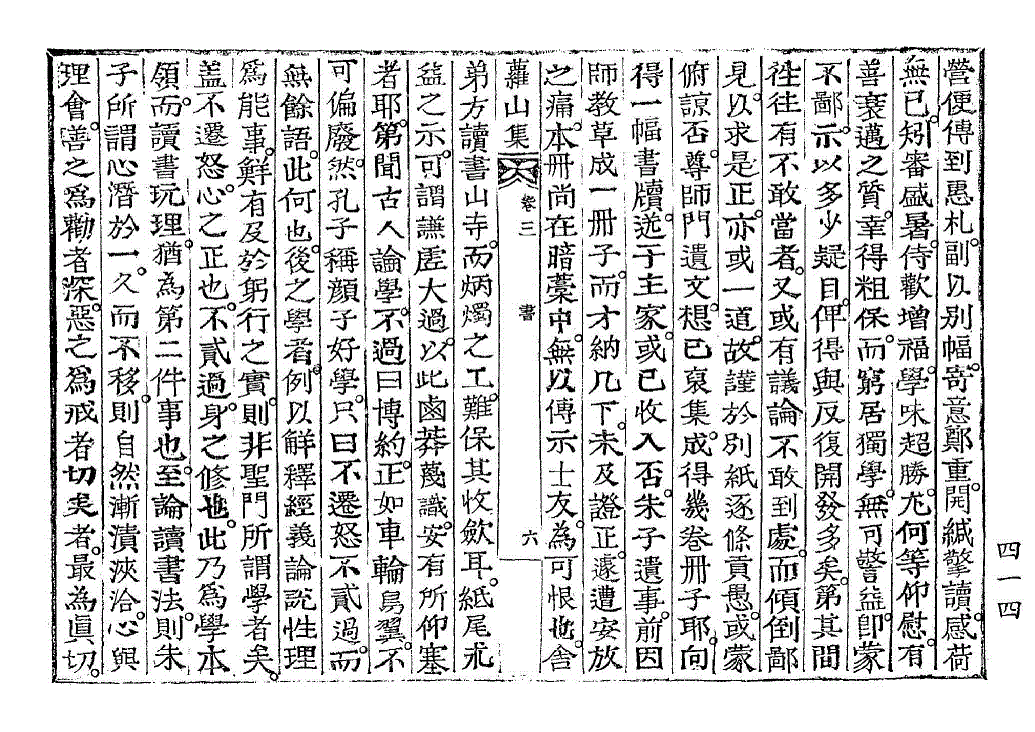 營便傳到惠札。副以別幅。寄意鄭重。開緘擎讀。感荷
無已。矧審盛暑。侍歡增福。學味超勝。尤何等仰慰。有
善衰邁之質。幸得粗保。而窮居獨學。無可警益。卽蒙
不鄙。示以多少疑目。俾得與反復開發多矣。第其間
往往有不敢當者。又或有議論不敢到處。而傾倒鄙
見。以求是正。亦或一道。故謹於別紙逐條貢愚。或蒙
俯諒否。尊師門遺文。想已裒集成。得幾卷冊子耶。向
得一幅書牘。送于主家。或已收入否。朱子遺事。前因
師敎草成一冊子。而才納几下。未及證正。遽遭安放
之痛。本冊尙在暗藁中。無以傳示士友。爲可恨也。舍
蘿山集 卷三 書 六
弟方讀書山寺。而炳燭之工。難保其收歛耳。紙尾光
益之示。可謂謙虛大過。以此鹵莽蔑識。安有所仰塞
者耶。第聞古人論學。不過曰博約。正如車輪鳥翼。不
可偏廢。然孔子稱顔子好學。只曰不遷怒不貳過。而
無餘語。此何也。後之學者。例以解釋經義論說性理
爲能事。鮮有及於躬行之實。則非聖門所謂學者矣。
盖不遷怒。心之正也。不貳過。身之修也。此乃爲學本
領。而讀書玩理。猶為第二件事也。至論讀書法。則朱
子所謂心潛於一。久而不移。則自然漸漬浹洽。心與
理會。善之爲勸者深。惡之爲戒者切矣者。最為眞切。
四一四